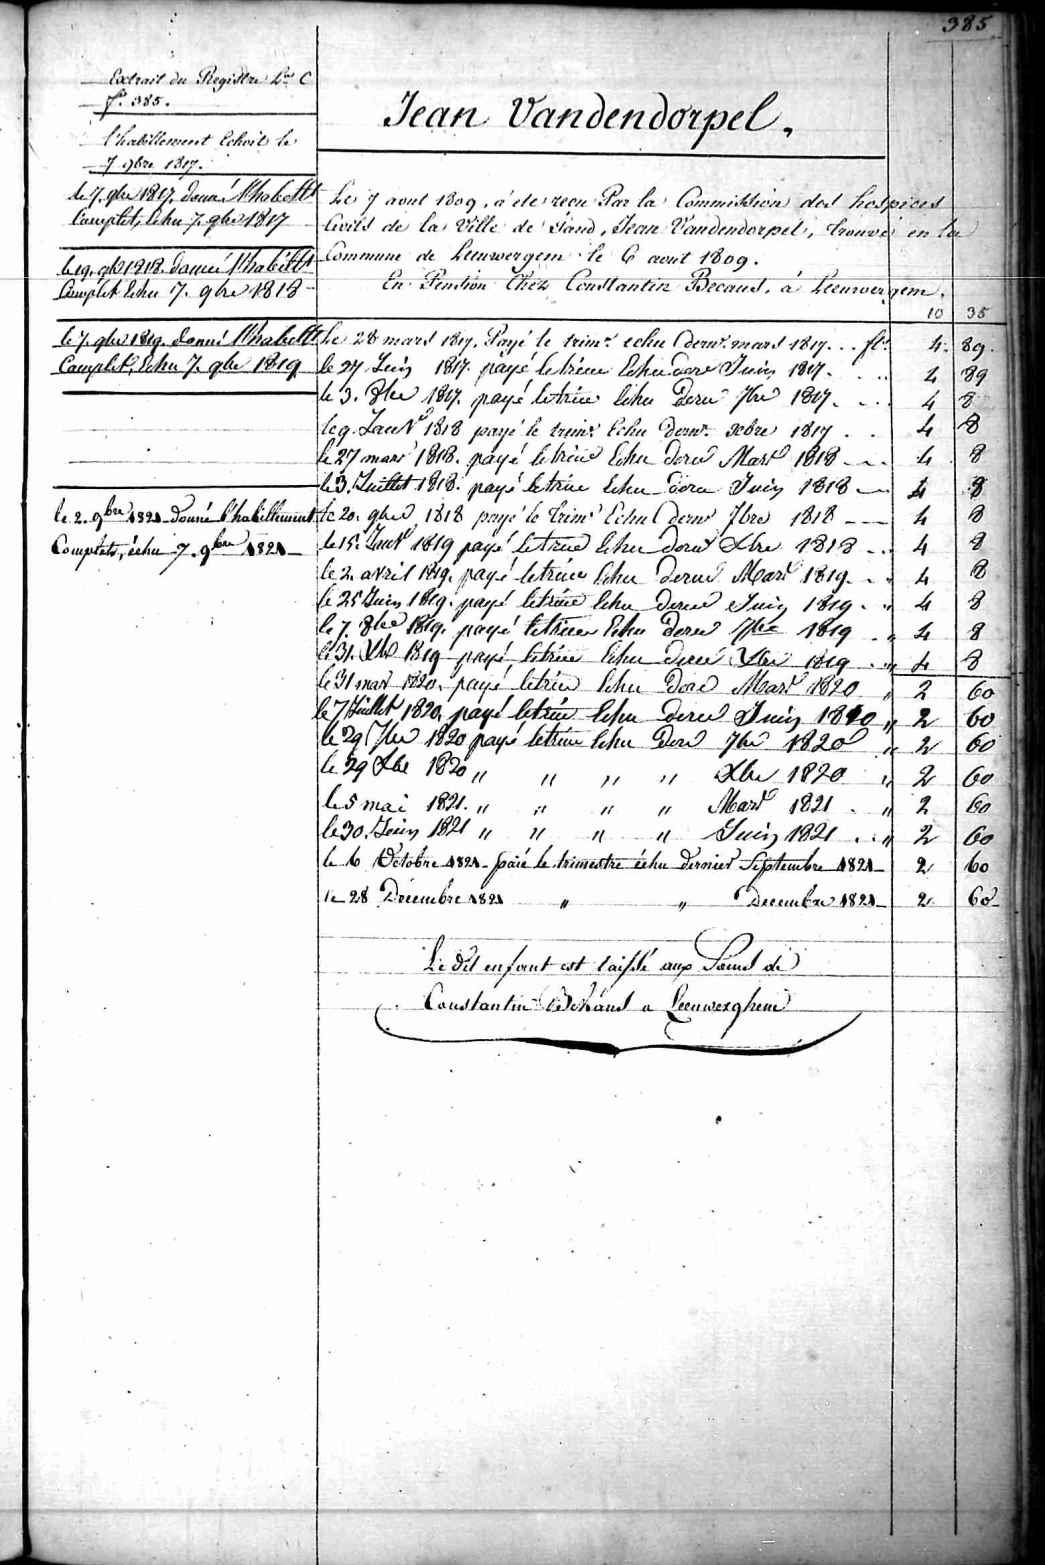 385
Extrait du Registre L.re C
f.° 385.
l'habillement Echoit le
7 9bre 1817.
le 7. 9bre 1817. donné l'habellt
Complet, Echu 7. 9bre 1817
le 19. 9b 1818. donné l'habillt
Complet Echu 7. 9bre 1818
le 7. 9bre 1819. donné l'habellt
Complet, Echu 7. 9bre 1819
le 2. 9bre 1821 donné l'habillement
Complets, échu 7. 9bre 1821
Jean Vandendorpel.
Le 7 aout 1809, à ete recu Par la Commission des hospices
Civils de la Ville de Gand, Jean Vandendorpel, trouvé en la
Commune de Leeuwergem le 6 aout 1809.
En Pension Chez Constantin Becaus, à Leeuwergem.
10 35
Le 28 mars 1817. Payé le trim.e echu dern.r mars 1817 . . . fl.s 4. 89.
le 27 Juin 1817. payé le trime Echu dere Juin 1817. . . . 4 89
le 3. 8bre 1817. payé le trime Echu Dern 7bre 1817. . . . 4 8
le 9. Janvr 1818 payé le trime Echu dern.r xbre 1817 . . 4 8
le 27 mars 1818. payé le trime Echu dern Mars 1818 4 8
le 3. Juillet 1818. payé le trime Echu dern Juin 1818 4 8
le 20. 9bre 1818 payé le trime Echu dern 7bre 1818 4 8
le 15. Janvr 1819 payé le trime Echu dernr Xbre 1818 . . 4 8
le 2. avril 1819. payé le trime Echu derne Mars 1819. . . 4 8
le 25 Juin 1819. payé le trime Echu derne Juin 1819 . „ 4 8
le 7. 8bre 1819. payé le trime Echu derne 7bre 1819 . „ 4 8
le 31. Xbre 1819 payé, le trime Echu derne Xbre 1819 . „ 4 8
le 31 mars 1820. payé le trime Echu dere Mars 1820 „ 2 60
le 7 Juillet 1820, payé le trime Echu derne Juin 1820 „ 2 60
le 29 7bre 1820 payé le trime Echu Dern 7bre 1820 „ 2 60
le 29 Xbre 1820 „ „ „ „ Xbre 1820 „ 2 60
le 5 mai 1821. „ „ „ „ Mars 1821 . „ 2 60
le 30. Juin 1821 „ „ „ „ Juin 1821 . . „ 2 60
le 6 Octobre 1821 païé le trimestre échu dernier Septembre 1821 2 60
le 28 Décembre 1821 „ „ Decembre 1821 2 60
Le dit enfant est laissé aux Soins de
Constantin Bekaus a Leeuwerghem